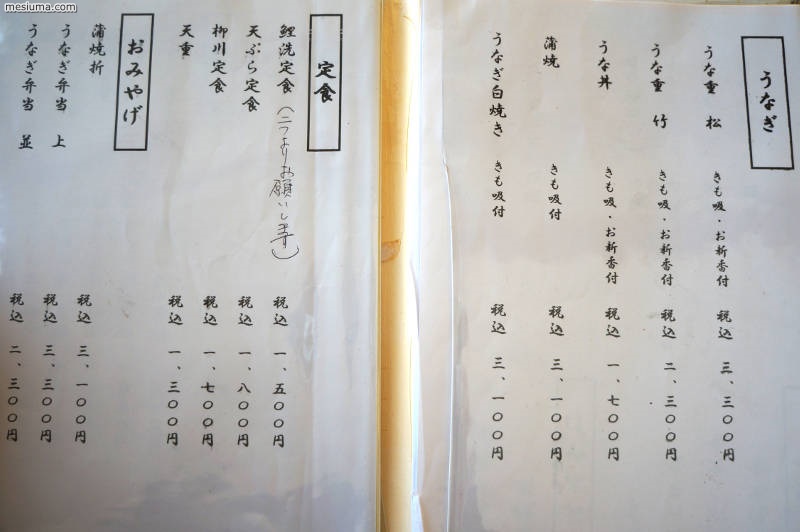 mesiuma.com
うなぎ
うな重 松 きも吸・お新香付 税込 三、三〇〇円
うな重 竹 きも吸・お新香付 税込 二、三〇〇円
うな丼 きも吸・お新香付 税込 一、七〇〇円
蒲焼 きも吸付 税込 三、一〇〇円
うなぎ白焼き きも吸付 税込 三、一〇〇円
定食
鯉洗定食(二つよりお願いします) 税込 一、五〇〇円
天ぷら定食 税込 一、八〇〇円
柳川定食 税込 一、七〇〇円
天重 税込 一、三〇〇円
おみやげ
蒲焼折 税込 三、一〇〇円
うなぎ弁当 上 税込 三、三〇〇円
うなぎ弁当 並 税込 二、三〇〇円